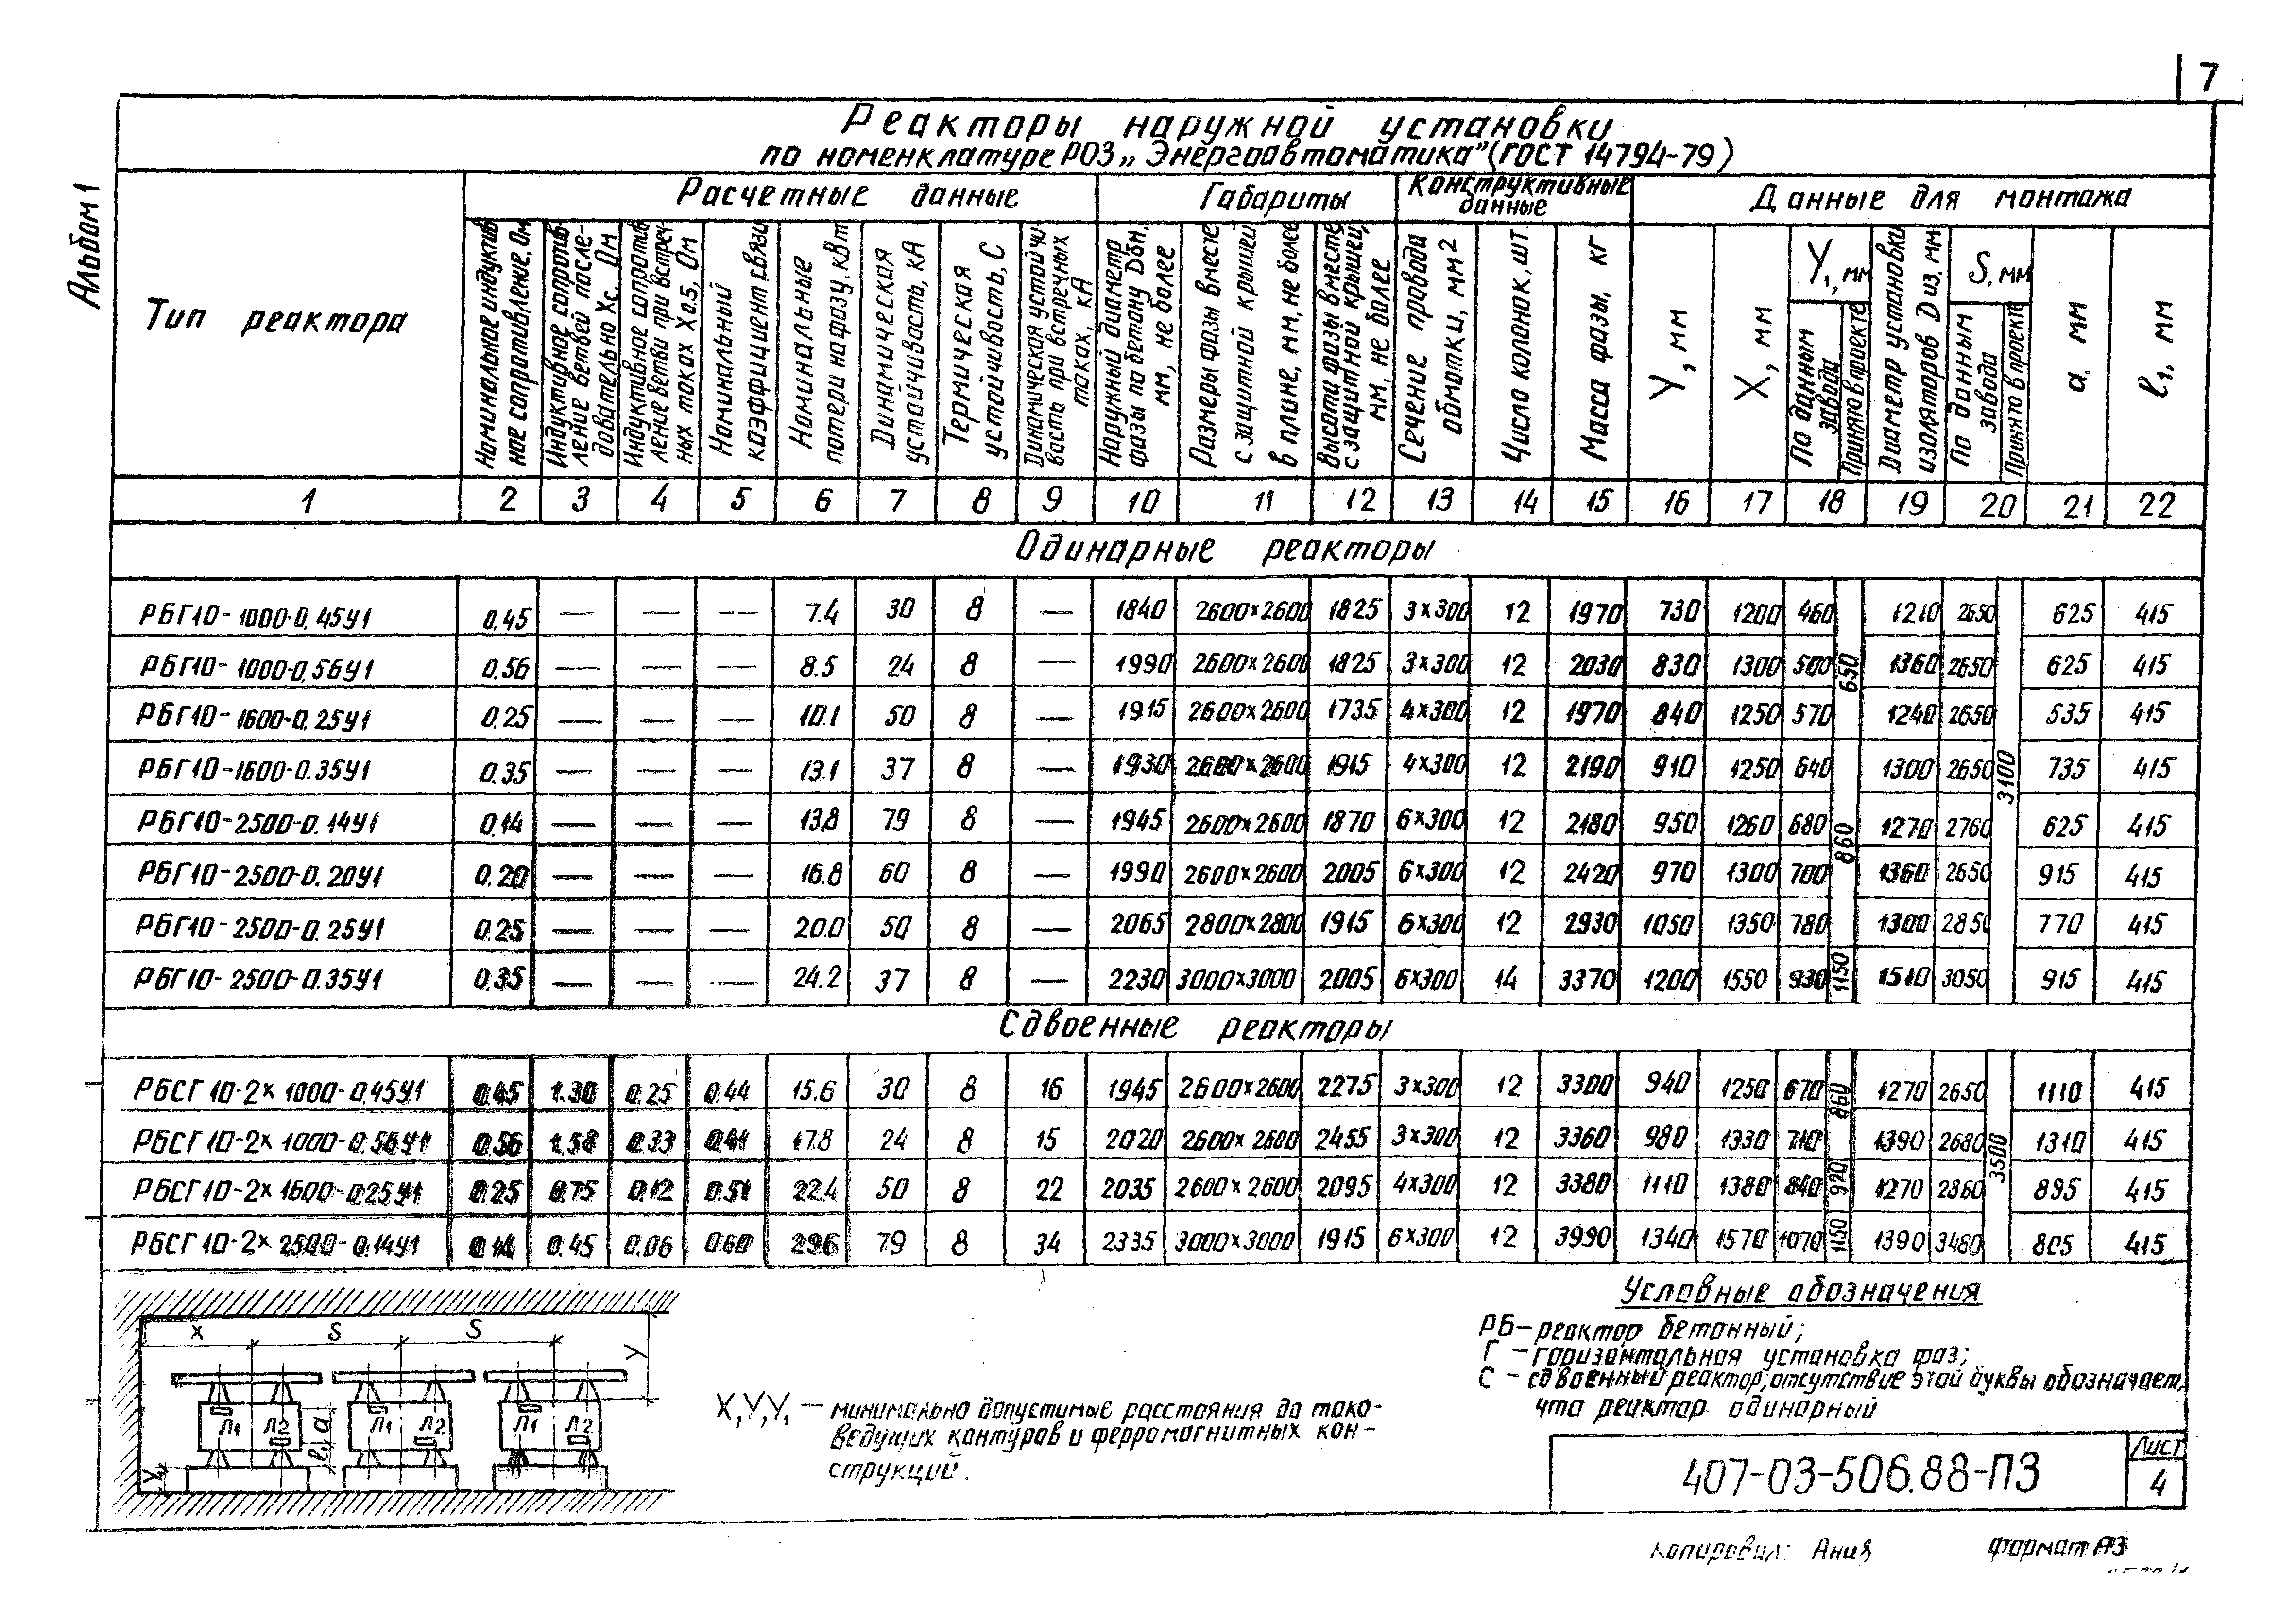 7
Альбом 1
Реакторы наружной установки
по номенклатуре РОЗ „Энергоавтоматика" (ГОСТ 14794-79)
Тип реактора
Расчетные данные
Габариты
Конструктивные данные
Данные для монтажа
Номинальное индуктивное сопротивление, Ом
Индуктивное сопротивление ветвей последовательно Xс, Ом
Индуктивное сопротивление ветви при встречных токах X0,5, Ом
Номинальный коэффициент связи
Номинальные потери на фазу, кВт
Динамическая устойчивость, кА
Термическая устойчивость, С
Динамическая устойчивость при встречных токах, кА
Наружный диаметр фазы по бетону Dбн, мм, не более
Размеры фазы вместе с защитной крышей в плане, мм, не более
Высота фазы вместе с защитной крышей, мм, не более
Сечение провода обмотки, мм2
Число колонок, шт.
Масса фазы, кг
Y, мм
X, мм
Y1, мм
По данным завода
Принято в проекте
Диаметр установки изоляторов Dиз, мм
S, мм
По данным завода
Принято в проекте
а, мм
ℓ1, мм
1 2 3 4 5 6 7 8 9 10 11 12 13 14 15 16 17 18 19 20 21 22
Одинарные реакторы
РБГ10-1000-0.45У1 0.45 — — — 7.4 30 8 — 1840 2600×2600 1825 3×300 12 1970 730 1200 460 1210 2650 625 415
РБГ10-1000-0.56У1 0.56 — — — 8.5 24 8 — 1990 2600×2600 1825 3×300 12 2030 830 1300 500 650 1360 2650 625 415
РБГ10-1600-0.25У1 0.25 — — — 10.1 50 8 — 1915 2600×2600 1735 4×300 12 1970 840 1250 570 1240 2650 535 415
РБГ10-1600-0.35У1 0.35 — — — 13.1 37 8 — 1930 2600×2600 1915 4×300 12 2190 910 1250 640 1300 2650 3100 735 415
РБГ10-2500-0.14У1 0.14 — — — 13.8 79 8 — 1945 2600×2600 1870 6×300 12 2180 950 1260 680 860 1270 2760 625 415
РБГ10-2500-0.20У1 0.20 — — — 16.8 60 8 — 1990 2600×2600 2005 6×300 12 2420 970 1300 700 1360 2650 915 415
РБГ10-2500-0.25У1 0.25 — — — 20.0 50 8 — 2065 2800×2800 1915 6×300 12 2930 1050 1350 780 1300 2850 770 415
РБГ10-2500-0.35У1 0.35 — — — 24.2 37 8 — 2230 3000×3000 2005 6×300 14 3370 1200 1550 930 1150 1510 3050 915 415
Сдвоенные реакторы
РБСГ10-2×1000-0.45У1 0.45 1.30 0.25 0.44 15.6 30 8 16 1945 2600×2600 2275 3×300 12 3300 940 1250 670 860 1270 2650 1110 415
РБСГ10-2×1000-0.56У1 0.56 1.58 0.33 0.41 17.8 24 8 15 2020 2600×2600 2455 3×300 12 3360 980 1330 710 1390 2680 3500 1310 415
РБСГ10-2×1600-0.25У1 0.25 0.75 0.12 0.51 22.4 50 8 22 2035 2600×2600 2095 4×300 12 3380 1110 1380 840 920 1270 2860 895 415
РБСГ10-2×2500-0.14У1 0.14 0.45 0.06 0.60 29.6 79 8 34 2335 3000×3000 1915 6×300 12 3990 1340 1570 1070 1150 1390 3460 805 415
X S S Y
Л1 Л2 а Л1 Л2 Л1 Л2
ℓ1
Y1
X, Y, Y1 — минимально допустимые расстояния до токо-
ведущих контуров и ферромагнитных кон-
струкций.
Условные обозначения
РБ — реактор бетонный;
Г — горизонтальная установка фаз;
С — сдвоенный реактор, отсутствие этой буквы обозначает,
что реактор одинарный
407-03-506.88-ПЗ
Лист
4
Копировал: Ания
Формат А3